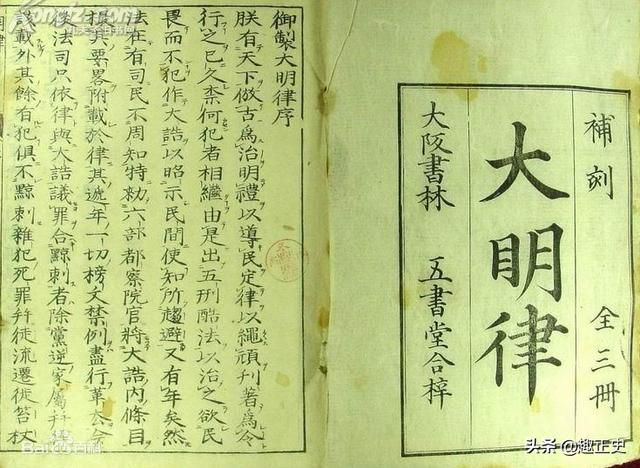 補刻 全三冊
大明律
大阪書林 五書堂合梓
御製大明律序
朕有天下倣古爲治明禮以導民定律以繩頑刊著爲令
行之已久柰何犯者相繼由是出五刑酷法以治之欲民
畏而不犯作大誥以昭示民間使知所趨避又有年矣然
法在有司民不周知特勑六部都察院官將大誥内條目
其要畧附載於律其遞年一切榜文禁例盡行革去今
後法司只依律與大誥議罪合黥刺者除黨逆家屬幷
載外其餘有犯俱不黥刺雜犯死罪幷徒流遷徙笞杖
Bai百科
头条 @趣正史